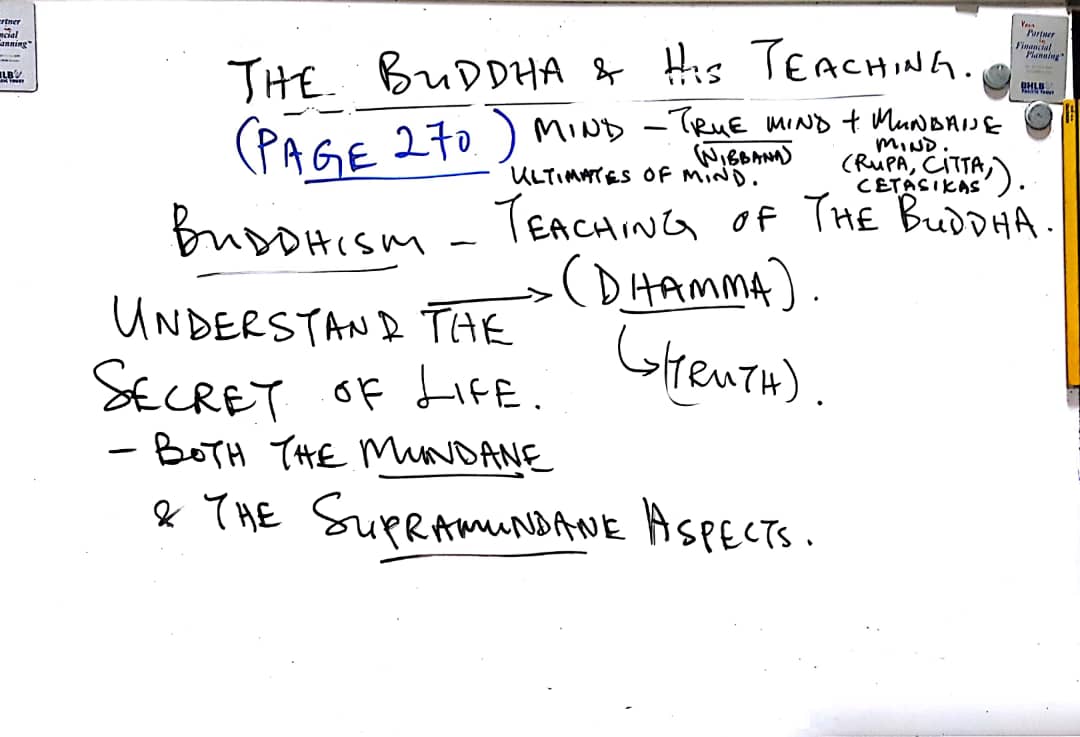 THE BUDDHA & His TEACHING.
(PAGE 270) MIND – TRUE MIND + MUNDANE MIND.
(NIBBANA) (RUPA, CITTA, CETASIKAS).
ULTIMATES OF MIND.
BUDDHISM – TEACHING OF THE BUDDHA.
(DHAMMA).
UNDERSTAND THE
(TRUTH).
SECRET OF LIFE.
– BOTH THE MUNDANE
& THE SUPRAMUNDANE ASPECTS.
Your
Partner
in
Financial
Planning
BHLB